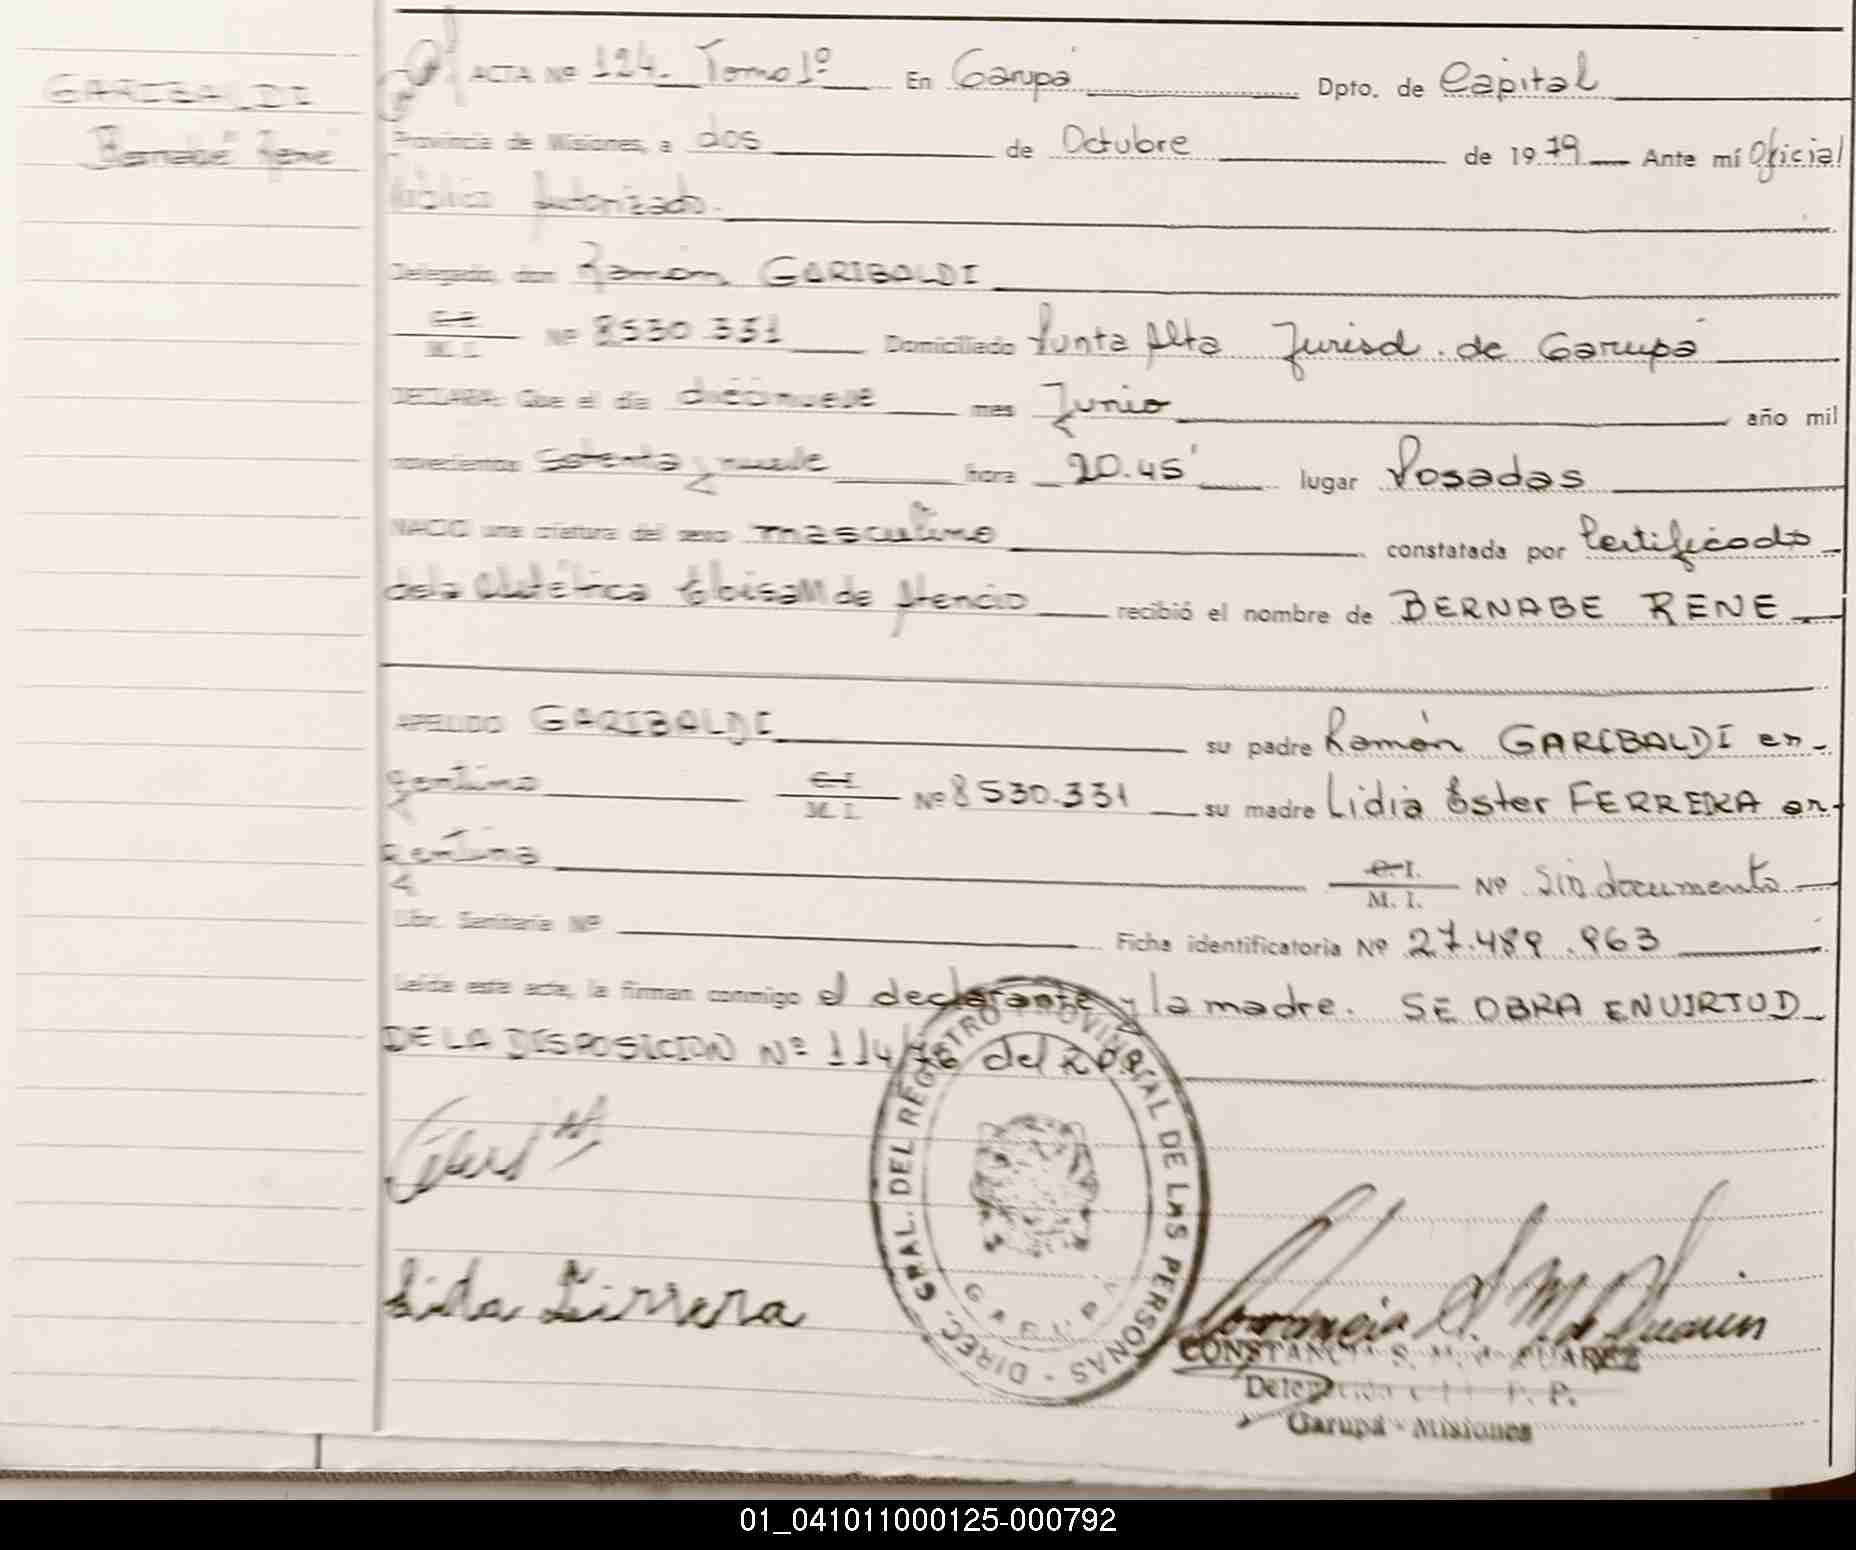 GARIBALDI
Bernabé René
ACTA Nº 124. Tomo 1º En Garupá Dpto. de Capital
Provincia de Misiones, a dos de Octubre de 1979 Ante mí Oficial
Público Autorizado.
Delegado, don Ramón GARIBALDI
C.I. M. I. Nº 8530.331 Domiciliado Punta Alta Jurisd. de Garupá
DECLARA: Que el día diecinueve mes Junio año mil
novecientos setenta y nueve hora 20.45' lugar Posadas
NACIO una criatura del sexo masculino constatada por Certificado
de la Obstétrica de Atencio recibió el nombre de BERNABE RENE
APELLIDO GARIBALDI su padre Ramón GARIBALDI ar-
gentino C.I. M. I. Nº 8530.331 su madre Lidia Ester FERREIRA ar-
gentina C.I. M. I. Nº Sin documento
Libr. Sanitaria Nº Ficha identificatoria Nº 27.489.963
Leída esta acta, la firman conmigo el declarante y la madre. SE OBRA EN VIRTUD
DE LA DISPOSICION Nº 114/76 del
DIREC. GRAL. DEL REGISTRO PROVINCIAL DE LAS PERSONAS
GARUPA
Lida Firrera
CONSTANCIA S. M. de SUAREZ
Garupá - Misiones
01_041011000125-000792